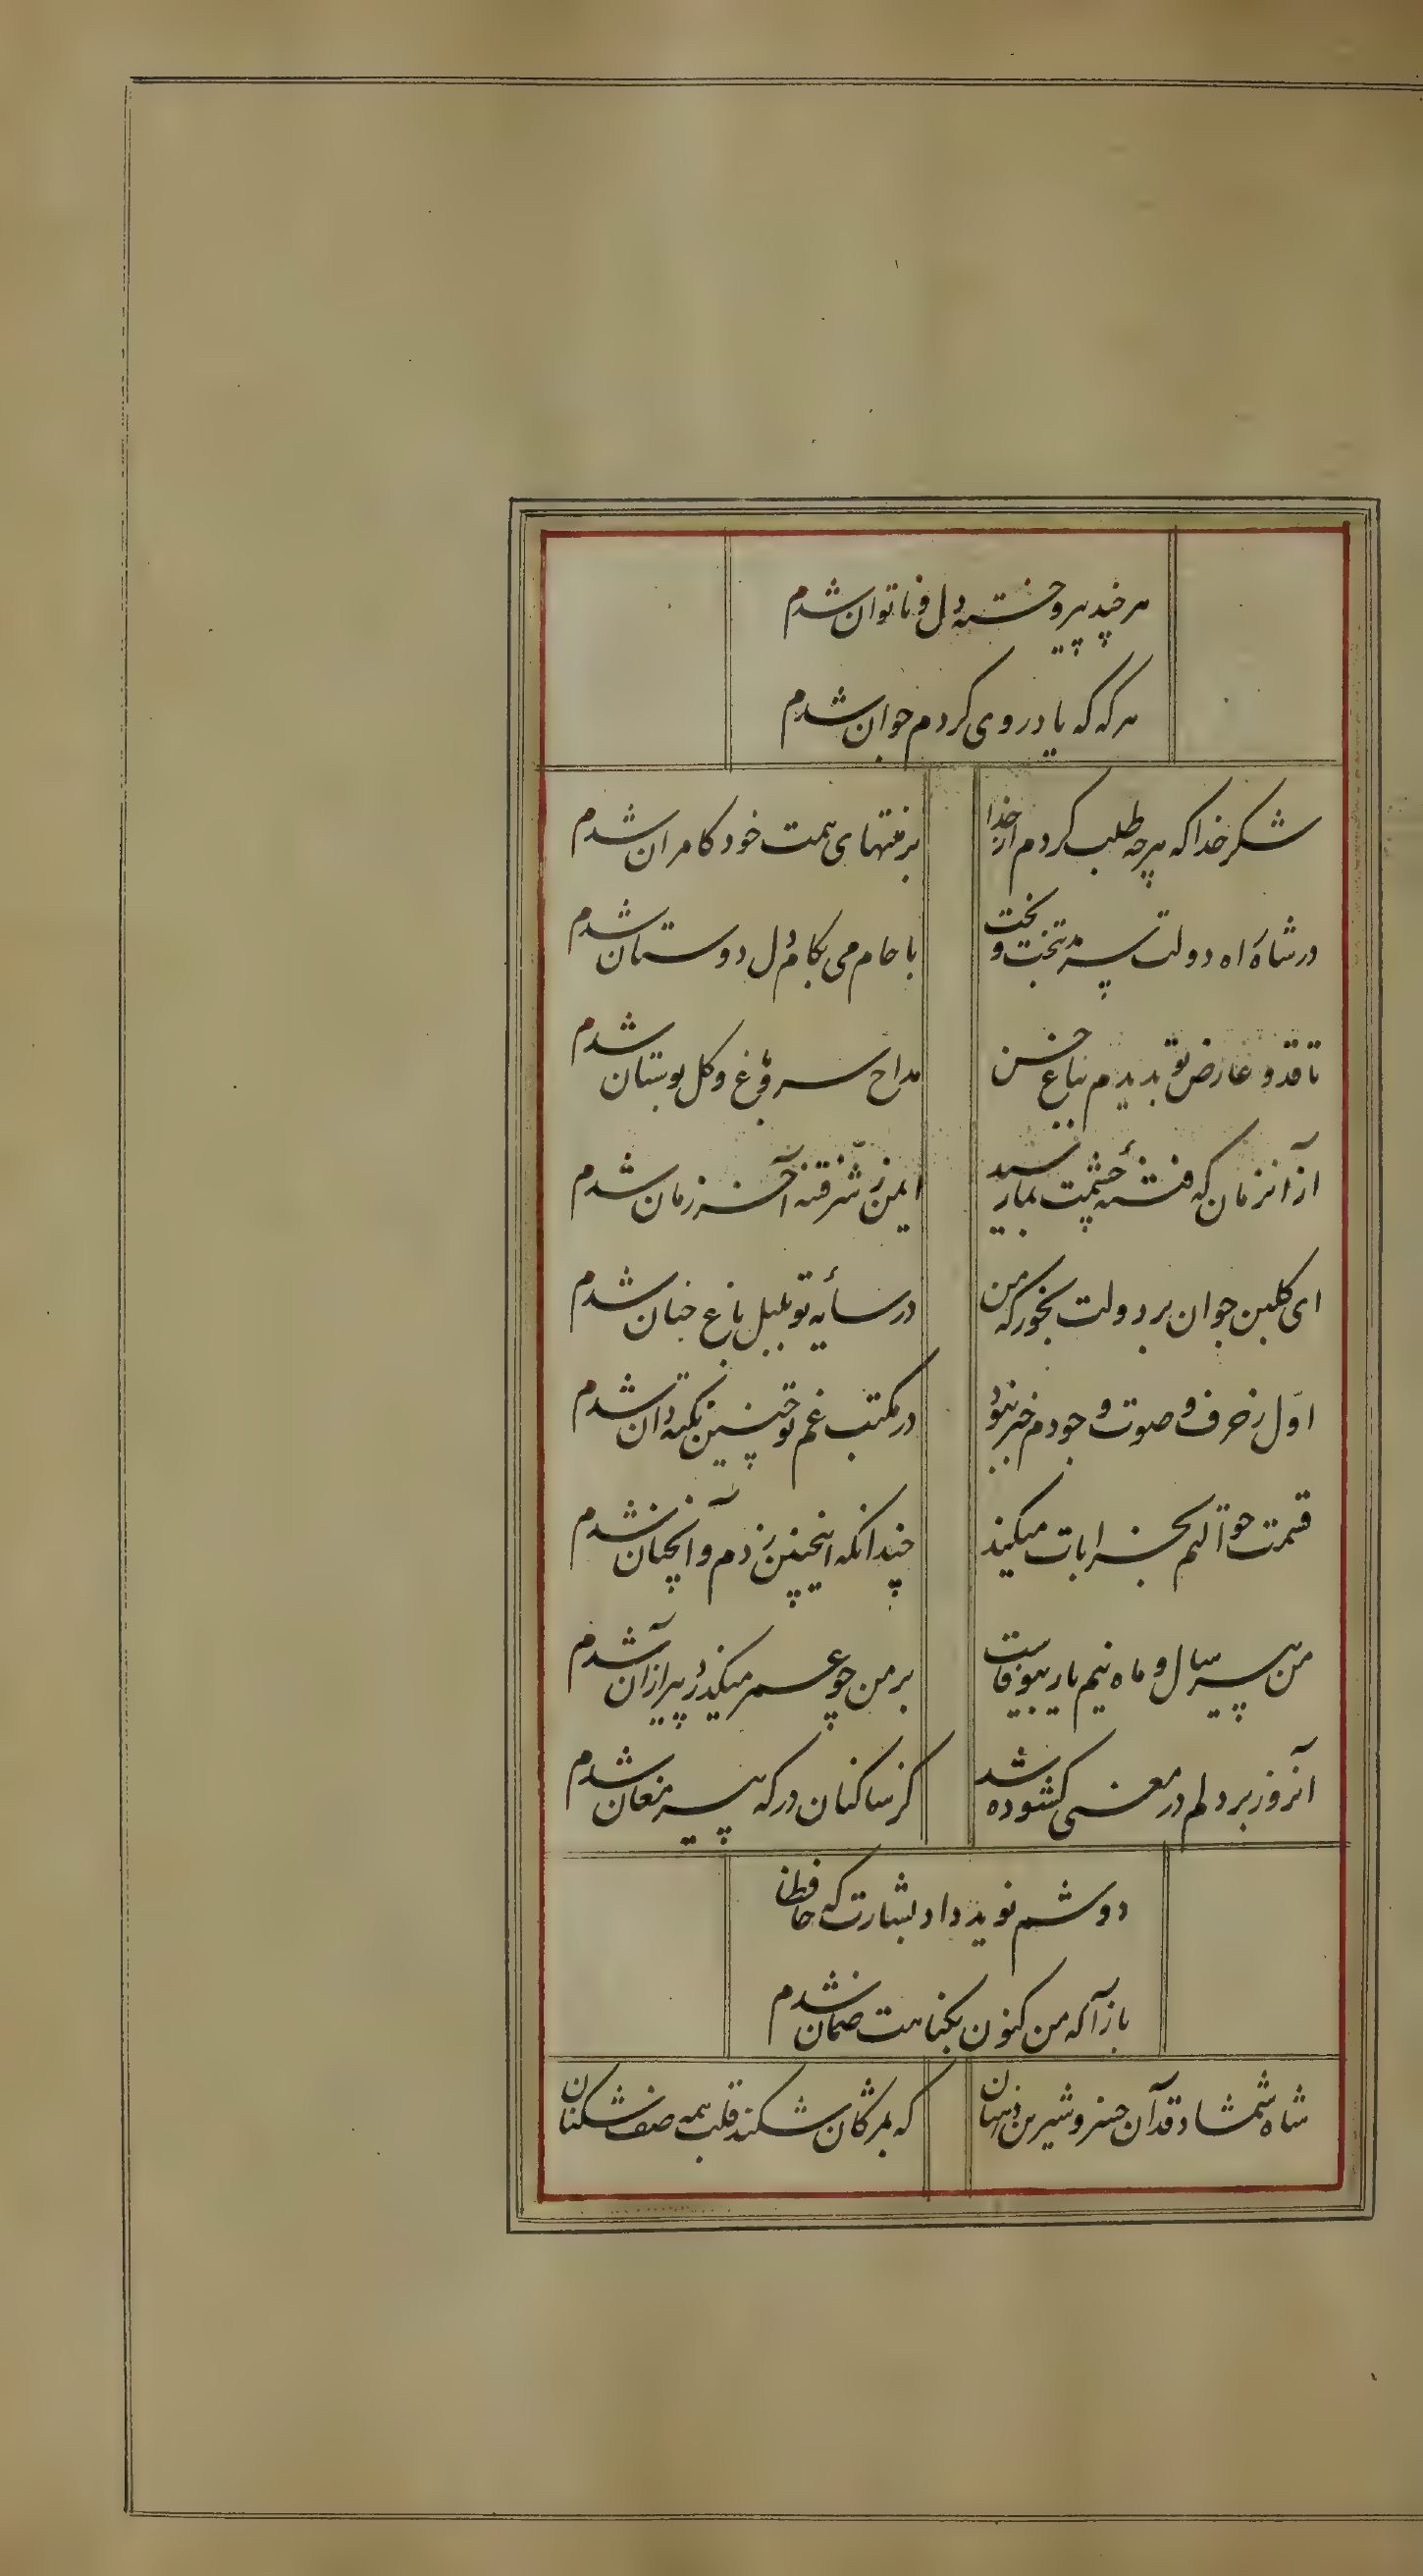 هر چند پیر و خسته دل و ناتوان شدم
هر که که یاد روی کردم جوان شدم
شکر خدا که هر چه طلب کردم از خدا
بر منتهای همت خود کامران شدم
در شاه راه دولت سرمد بتخت و بخت
با جام می بکام دل دوستان شدم
تا قد و عارض تو بدیدم بباغ حسن
مداح سرو فرغ و کل بوستان شدم
از آنزمان که فتنه چشمت بما رسید
ایمن ز شر فتنه آخر زمان شدم
ای کلبن جوان بر دولت بخور که من
در سایه تو بلبل باغ جنان شدم
اول ز حرف و صوت و جودم خبر نبود
در مکتب غم تو چنین نکته دان شدم
قسمت حوالتم بخرابات میکند
چندانکه اینچنین زدم و آنچنان شدم
من پیر سال و ماه نیم یار بیوفاست
بر من چو عمر میکذرد پیر ازان شدم
آنروز بر دلم در معنی کشوده شد
کز ساکنان درکه پیر مغان شدم
دوشم نوید داد بشارت که حافظا
باز آ که من کنون بکناهت ضمان شدم
شاه شمشاد قدآن خسرو شیرین دهنان
که بمژکان شکند قلب همه صف شکنان